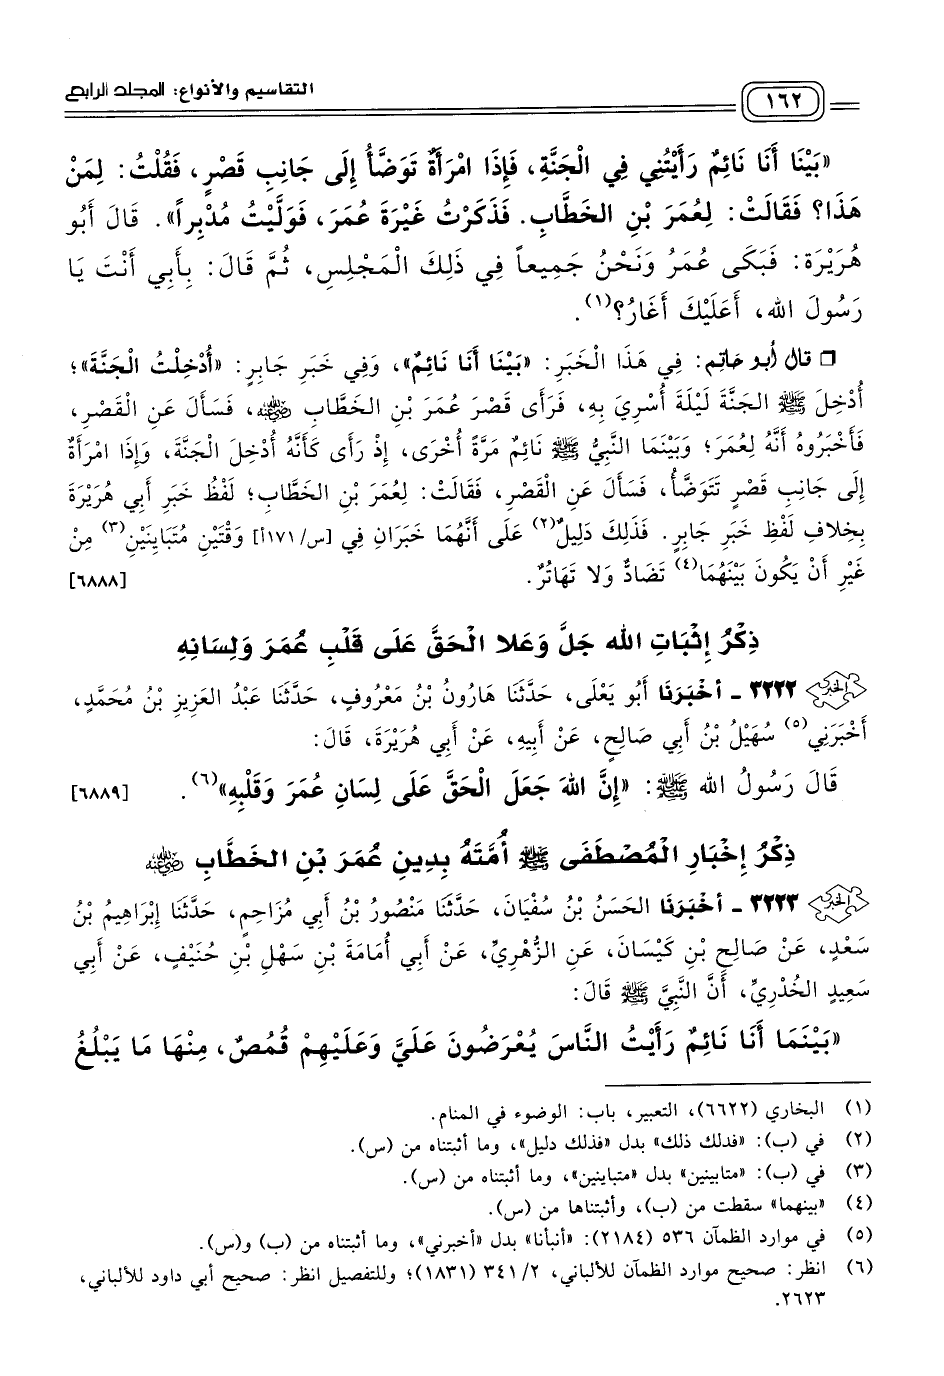 ١٦٢
التقاسيم والأنواع: المجلد الرابع
«بَيْنَا أَنَا نَائِمٌ رَأَيْتُنِي فِي الْجَنَّةِ، فَإِذَا امْرَأَةٌ تَوَضَّأُ إِلَى جَانِبِ قَصْرٍ، فَقُلْتُ: لِمَنْ
هَذَا؟ فَقَالَتْ: لِعُمَرَ بْنِ الخَطَّابِ. فَذَكَرْتُ غَيْرَةَ عُمَرَ، فَوَلَّيْتُ مُدْبِراً». قَالَ أَبُو
هُرَيْرَةَ: فَبَكَى عُمَرُ وَنَحْنُ جَمِيعاً فِي ذَلِكَ الْمَجْلِسِ، ثُمَّ قَالَ: بِأَبِي أَنْتَ يَا
رَسُولَ اللهِ، أَعَلَيْكَ أَغَارُ؟(١).
❒ قال أبو حاتم: فِي هَذَا الْخَبَرِ: «بَيْنَا أَنَا نَائِمٌ»، وَفِي خَبَرِ جَابِرٍ: «أُدْخِلْتُ الْجَنَّةَ»؛
أُدْخِلَ ﷺ الجَنَّةَ لَيْلَةَ أُسْرِيَ بِهِ، فَرَأَى قَصْرَ عُمَرَ بْنِ الخَطَّابِ رضي الله عنه، فَسَأَلَ عَنِ الْقَصْرِ،
فَأَخْبَرُوهُ أَنَّهُ لِعُمَرَ؛ وَبَيْنَمَا النَّبِيُّ ﷺ نَائِمٌ مَرَّةً أُخْرَى، إِذْ رَأَى كَأَنَّهُ أُدْخِلَ الْجَنَّةَ، وَإِذَا امْرَأَةٌ
إِلَى جَانِبِ قَصْرٍ تَتَوَضَّأُ، فَسَأَلَ عَنِ الْقَصْرِ، فَقَالَتْ: لِعُمَرَ بْنِ الخَطَّابِ؛ لَفْظُ خَبَرِ أَبِي هُرَيْرَةَ
بِخِلَافِ لَفْظِ خَبَرِ جَابِرٍ. فَذَلِكَ دَلِيلٌ(٢) عَلَى أَنَّهُمَا خَبَرَانِ فِي [س/١٧١أ] وَقْتَيْنِ مُتَبَايِنَيْنِ(٣) مِنْ
غَيْرِ أَنْ يَكُونَ بَيْنَهُمَا(٤) تَضَادٌّ وَلَا تَهَاتُرٌ. [٦٨٨٨]
ذِكْرُ إِثْبَاتِ اللهِ جَلَّ وَعَلَا الْحَقَّ عَلَى قَلْبِ عُمَرَ وَلِسَانِهِ
الخبر ٣٢٢٢ ـ أَخْبَرَنَا أَبُو يَعْلَى، حَدَّثَنَا هَارُونُ بْنُ مَعْرُوفٍ، حَدَّثَنَا عَبْدُ العَزِيزِ بْنُ مُحَمَّدٍ،
أَخْبَرَنِي(٥) سُهَيْلُ بْنُ أَبِي صَالِحٍ، عَنْ أَبِيهِ، عَنْ أَبِي هُرَيْرَةَ، قَالَ:
قَالَ رَسُولُ اللهِ ﷺ: «إِنَّ اللهَ جَعَلَ الْحَقَّ عَلَى لِسَانِ عُمَرَ وَقَلْبِهِ»(٦). [٦٨٨٩]
ذِكْرُ إِخْبَارِ الْمُصْطَفَى ﷺ أُمَّتَهُ بِدِينِ عُمَرَ بْنِ الخَطَّابِ رضي الله عنه
الخبر ٣٢٢٣ ـ أَخْبَرَنَا الحَسَنُ بْنُ سُفْيَانَ، حَدَّثَنَا مَنْصُورُ بْنُ أَبِي مُزَاحِمٍ، حَدَّثَنَا إِبْرَاهِيمُ بْنُ
سَعْدٍ، عَنْ صَالِحِ بْنِ كَيْسَانَ، عَنِ الزُّهْرِيِّ، عَنْ أَبِي أُمَامَةَ بْنِ سَهْلِ بْنِ حُنَيْفٍ، عَنْ أَبِي
سَعِيدٍ الخُدْرِيِّ، أَنَّ النَّبِيَّ ﷺ قَالَ:
«بَيْنَمَا أَنَا نَائِمٌ رَأَيْتُ النَّاسَ يُعْرَضُونَ عَلَيَّ وَعَلَيْهِمْ قُمُصٌ، مِنْهَا مَا يَبْلُغُ
(١) البخاري (٦٦٢٢)، التعبير، باب: الوضوء في المنام.
(٢) في (ب): «فدلك ذلك» بدل «فذلك دليل»، وما أثبتناه من (س).
(٣) في (ب): «متابينين» بدل «متباينين»، وما أثبتناه من (س).
(٤) «بينهما» سقطت من (ب)، وأثبتناها من (س).
(٥) في موارد الظمآن ٥٣٦ (٢١٨٤): «أنبأنا» بدل «أخبرني»، وما أثبتناه من (ب) و(س).
(٦) انظر: صحيح موارد الظمآن للألباني، ٢/ ٣٤١ (١٨٣١)؛ وللتفصيل انظر: صحيح أبي داود للألباني،
٢٦٢٣.